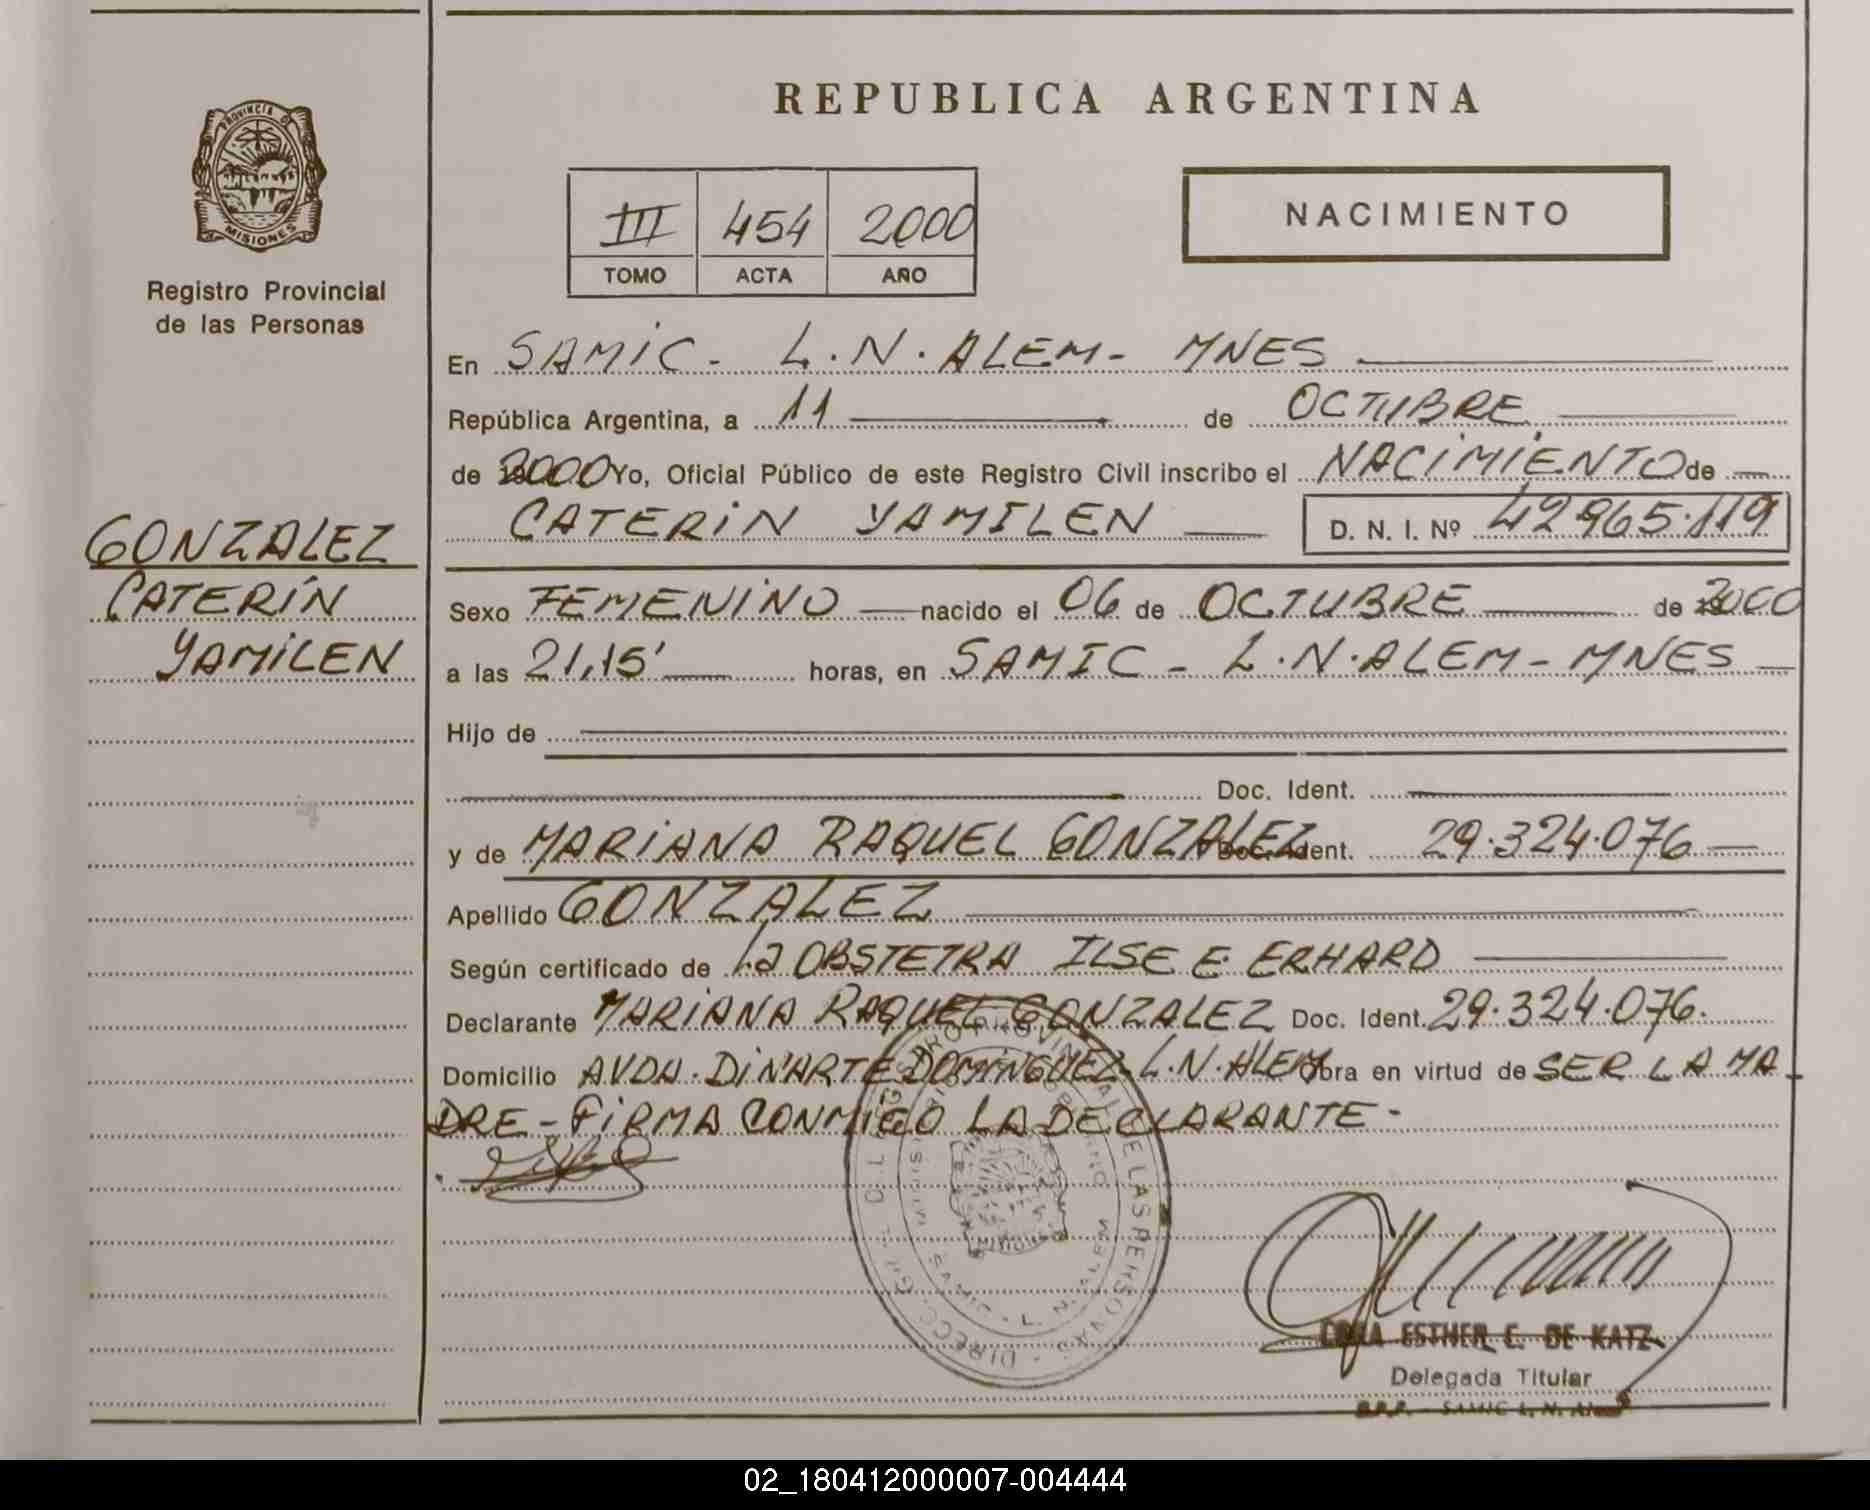 PROVINCIA DE
MISIONES
Registro Provincial
de las Personas
GONZALEZ
CATERÍN
YAMILEN
REPUBLICA ARGENTINA
III 454 2000
TOMO ACTA AÑO
NACIMIENTO
En SAMIC - L.N. ALEM - MNES
República Argentina, a 11 de OCTUBRE
de 2000 Yo, Oficial Público de este Registro Civil inscribo el NACIMIENTO de
CATERIN YAMILEN D. N. I. Nº 42965.119
Sexo FEMENINO nacido el 06 de OCTUBRE de 2000
a las 21,15' horas, en SAMIC - L.N. ALEM - MNES
Hijo de
Doc. Ident.
y de MARIANA RAQUEL GONZALEZ Doc. Ident. 29.324.076
Apellido GONZALEZ
Según certificado de La OBSTETRA ILSE E. ERHARD
Declarante MARIANA RAQUEL GONZALEZ Doc. Ident. 29.324.076.
Domicilio AVDA. DINARTE DOMINGUEZ L.N. ALEM Obra en virtud de SER LA MA
DRE - FIRMA CONMIGO LA DECLARANTE -
MISIONES
L. N. ALEM
CORA ESTHER C. DE KATZ
Delegada Titular
R.P.P. - SAMIC L. N. Alem
02_180412000007-004444